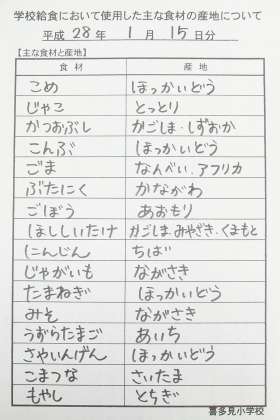 学校給食において使用した主な食材の産地について
平成 28 年 1 月 15 日分
【主な食材と産地】
食材 産地
こめ ほっかいどう
じゃこ とっとり
かつおぶし かごしま・しずおか
こんぶ ほっかいどう
ごま なんべい、アフリカ
ぶたにく かながわ
ごぼう あおもり
ほししいたけ かごしま、みやざき、くまもと
にんじん ちば
じゃがいも ながさき
たまねぎ ほっかいどう
みそ ながさき
うずらたまご あいち
さやいんげん ほっかいどう
こまつな さいたま
もやし とちぎ
喜多見小学校